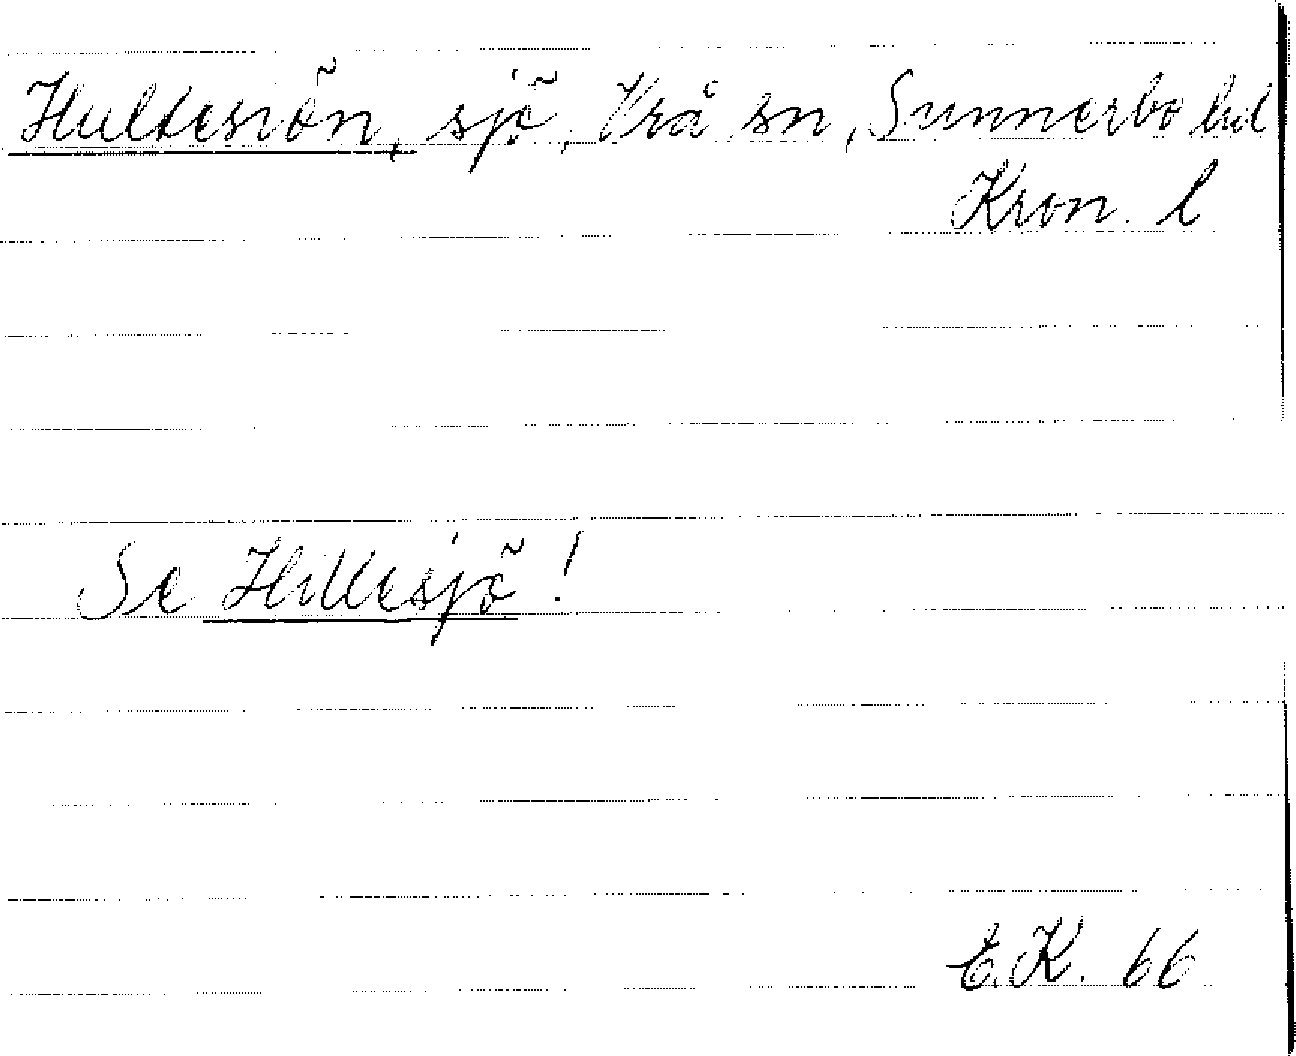 Hultesiön, sjö, Vrå sn, Sunnerbo hd
Kron. l
Se Hillesjö!
E.K. 66